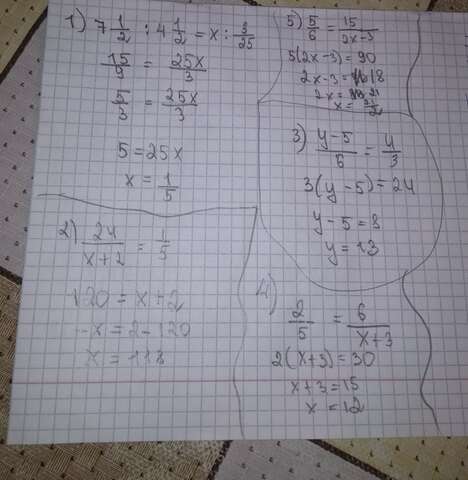 1) 7 1/2 : 4 1/2 = x : 3/25
15/9 = 25x/3
5/3 = 25x/3
5 = 25x
x = 1/5
2) 24/(x+2) = 1/5
120 = x+2
-x = 2-120
x = 118
5) 5/6 = 15/(2x-3)
5(2x-3) = 90
2x-3 = 18
2x = 21
x = 21/2
3) (y-5)/6 = 4/3
3(y-5) = 24
y-5 = 8
y = 13
4) 2/5 = 6/(x+3)
2(x+3) = 30
x+3 = 15
x = 12